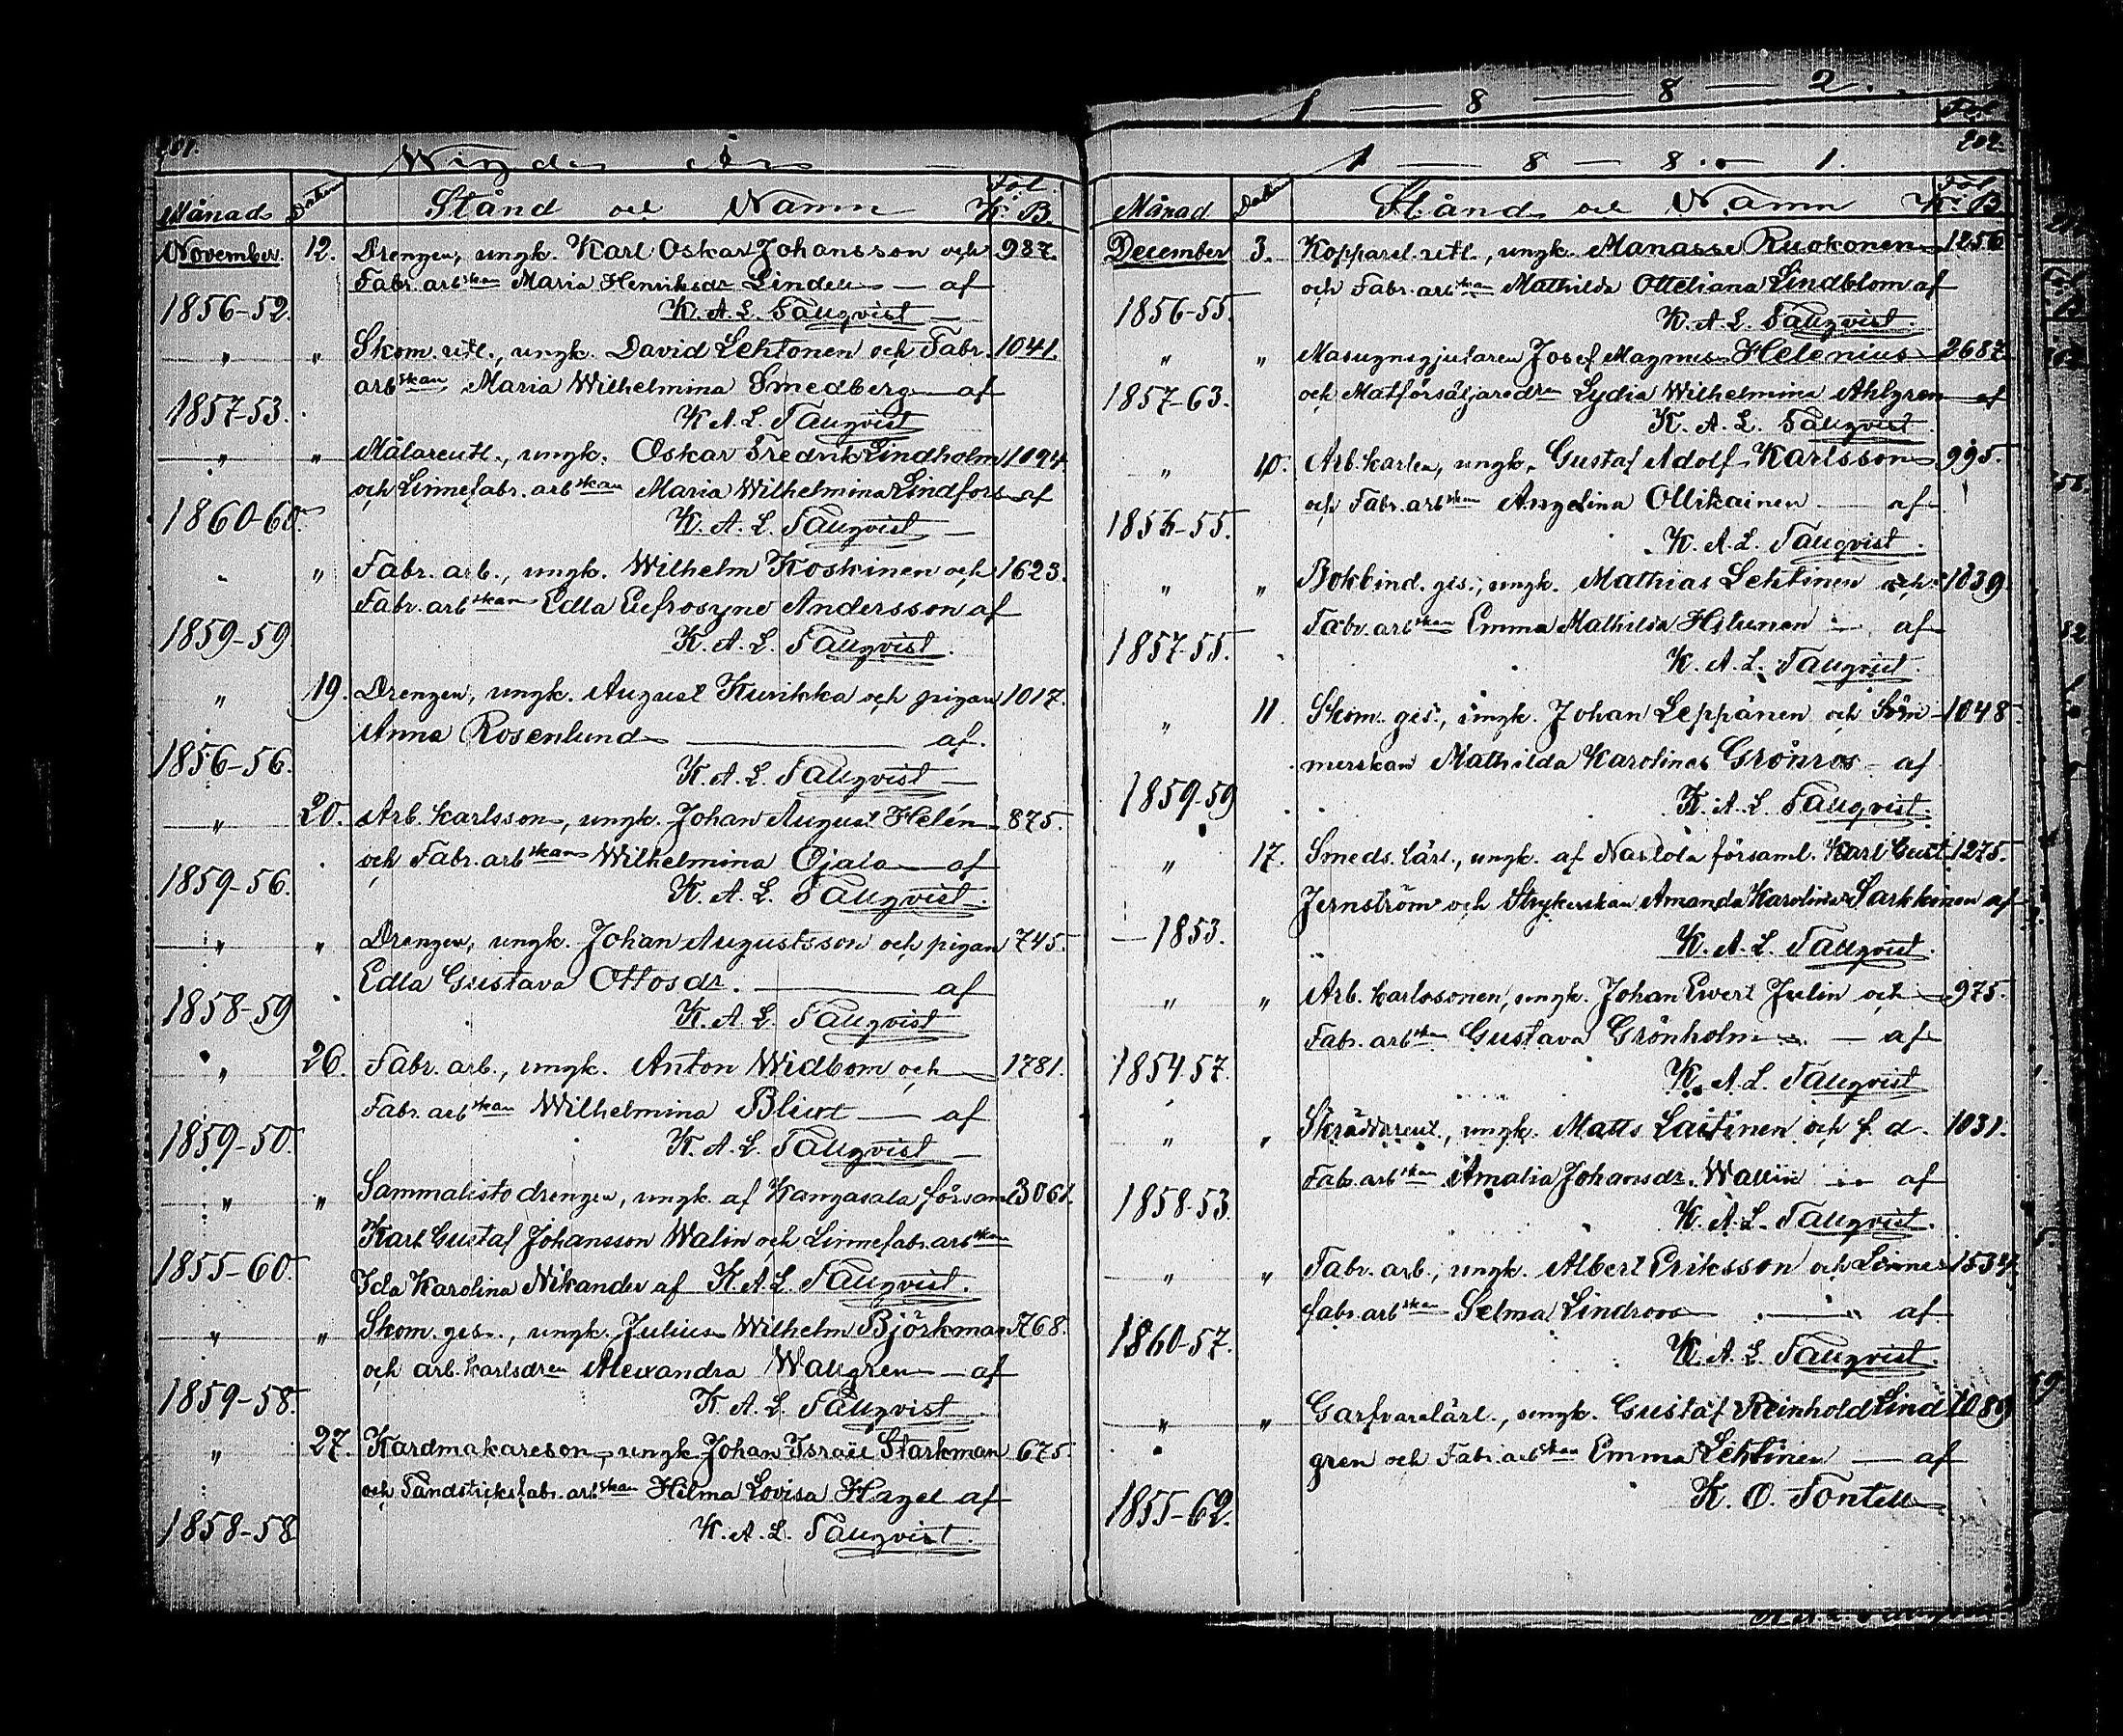 201.
Wigde år
Månad Datum Stånd och Namn Fol. K. B.
November. 12. Drengen, ungk. Karl Oskar Johansson och 987.
Fabr. arbskan Maria Henriksdr Lindell — af
1856-52. K. A. L. Tallqvist
" " Skom. utl., ungk. David Lehtonen och Fabr. 1041.
arbskan Maria Wilhelmina Smedberg — af
1857-53. K. A. L. Tallqvist
" " Målareutl., ungk. Oskar Fredrik Lindholm 1094
och Linnefabr. arbskan Maria Wilhelmina Lindfors af
1860-60. K. A. L. Tallqvist
" " Fabr. arb., ungk. Wilhelm Koskinen och 1623.
Fabr. arbskan Edla Eufrosyne Andersson af
1859-59 K. A. L. Tallqvist.
" 19. Drengen, ungk. August Kurikka och pigan 1017.
Anna Rosenlund — af.
1856-56. K. A. L. Tallqvist
" 20. Arb. karlsson, ungk. Johan August Helén 875.
och Fabr. arbskan Wilhelmina Ojala — af
1859-56. K. A. L. Tallqvist.
" " Drengen, ungk. Johan Augustsson och pigan 745.
Edla Gustava Ottosdr. — af
1858-59 K. A. L. Tallqvist
" 26. Fabr. arb., ungk. Anton Widbom och 1781.
Fabr. arbskan Wilhelmina Blixt — af
1859-50. K. A. L. Tallqvist
" " Sammalisto drengen, ungk. af Kangasala församl. 3061.
Karl Gustaf Johansson Walin och Linnefabr. arbskan
1855-60. Ida Karolina Nikander af K. A. L. Tallqvist.
" " Skom. ges., ungk. Julius Wilhelm Björkman 768.
och arb. karlsdren Alexandra Wallgren — af
1859-58. K. A. L. Tallqvist
" 27. Kardmakareson, ungk. Johan Israël Starkman 675.
och Tändsticksfabr. arbskan Hilma Lovisa Hagel af
1858-58 K. A. L. Tallqvist.
1 — 8 — 8 — 2.
Fol.
202.
1 — 8 — 8 — 1.
Månad Datum Stånd och Namn Fol. K. B.
December 3. Kopparsl. utl., ungk. Manasse Ruokonen 1256
och Fabr. arbskan Mathilda Otteliana Lindblom af
1856-55. K. A. L. Tallqvist.
" " Masugnsgjutaren Josef Magnus Helenius 2687.
och Matförsäljaredren Lydia Wilhelmina Ahlgren af
1857-63. K. A. L. Tallqvist.
" 10. Arb. karlen, ungk. Gustaf Adolf Karlsson 995.
och Fabr. arbskan Angelina Ollikainen — af
1856-55. K. A. L. Tallqvist.
" " Bokbind. ges., ungk. Mathias Lehtinen och 1039.
Fabr. arbskan Emma Mathilda Hitunen — af
1857-55. K. A. L. Tallqvist.
" 11. Skom. ges., ungk. Johan Leppänen och Söm- 1048.
merskan Mathilda Karolina Grönros — af
1859-59 K. A. L. Tallqvist.
" 17. Smeds. lärl., ungk. af Nastola församl. Karl Gust. 1275.
Jernström och Strykerskan Amanda Karolina Sarkkinen af
—1853. K. A. L. Tallqvist.
" " Arb. karlssonen, ungk. Johan Evert Julin och 975.
Fabr. arbskan Gustava Grönholm — af
1854-57. K. A. L. Tallqvist
" " Skräddareutl., ungk. Matts Laitinen och f. d. 1031.
Fab. arbskan Amalia Johansdr. Wallin — af
1858-53. K. A. L. Tallqvist.
" " Fabr. arb., ungk. Albert Eriksson och Linne- 1534.
fabr. arbskan Selma Lindroos — af
1860-57. K. A. L. Tallqvist.
" " Garfvarelärl., ungk. Gustaf Reinhold Lind- 1089
gren och Fabr. arbskan Emma Lehtinen — af
1855-62. K. O. Fontell